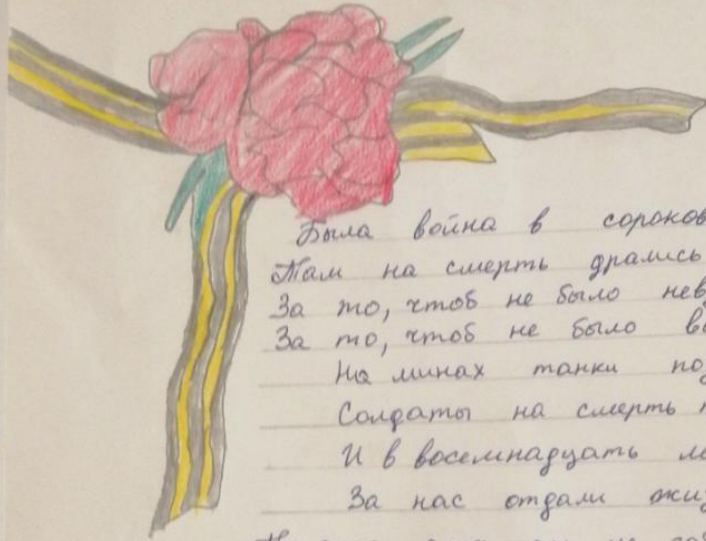 Была война в сороков
Там на смерть дрались
За то, чтоб не было нев
За то, чтоб не было во
На минах танки под
Солдаты на смерть
И в восемнадцать ле
За нас отдали жиз